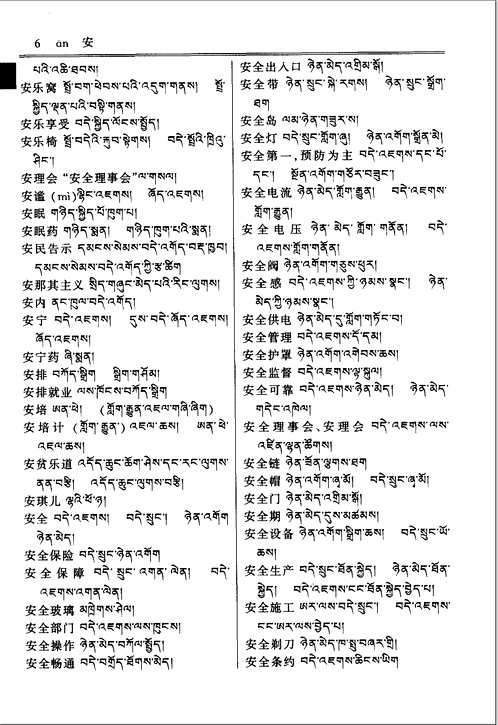 6 ān 安
པའི་འཆི་ཐབས།
安乐窝 སྤྲོ་བག་ཕེབས་པའི་འདུག་གནས། སྤྲོ་
སྐྱིད་ལྡན་པའི་བསྟི་གནས།
安乐享受 བདེ་སྐྱིད་ལོངས་སྤྱོད།
安乐椅 སྤྲོ་བདེའི་རྐུབ་སྟེགས། བདེ་སྤྲོའི་ཁྲིའུ་
ཤིང་།
安理会 “安全理事会”ལ་གསལ།
安谧 (mì)ལྷིང་འཇགས། ཞོད་འཇགས།
安眠 གཉིད་སྐྱིད་པོ་ཁུག་པ།
安眠药 གཉིད་སྨན། གཉིད་ཁུག་པའི་སྨན།
安民告示 དམངས་སེམས་བདེ་འགོད་བརྡ་ཁྱབ།
དམངས་སེམས་བདེ་འགོད་ཀྱི་རྩ་ཚིག
安那其主义 སྲིད་གཞུང་མེད་པའི་རིང་ལུགས།
安内 ནང་ཁུལ་བདེ་འགོད།
安宁 བདེ་འཇགས། དུས་བདེ་ཞོད་འཇགས།
ཞོད་འཇགས།
安宁药 ཞི་སྨན།
安排 བཀོད་སྒྲིག སྒྲིག་གཤོམ།
安排就业 ལས་ཁོངས་བཀོད་སྒྲིག
安培 ཨན་ཕེ། (གློག་རྒྱུན་འཇལ་གཞི་ཞིག)
安培计 (གློག་རྒྱུན་) འཇལ་ཆས། ཨན་ཕེ་
འཇལ་ཆས།
安贫乐道 འདོད་ཆུང་ཆོག་ཤེས་དང་རང་ལུགས་
ནན་བརྩི། འདོད་ཆུང་ལུགས་བརྩི།
安琪儿 ལྷའི་ཕོ་ཉ།
安全 བདེ་འཇགས། བདེ་སྲུང་། ཉེན་འགོག
ཉེན་མེད།
安全保险 བདེ་སྲུང་ཉེན་འགོག
安全保障 བདེ་སྲུང་འགན་ལེན། བདེ་
འཇགས་འགན་ལེན།
安全玻璃 མཁྲེགས་ཤེལ།
安全部门 བདེ་འཇགས་ལས་ཁུངས།
安全操作 ཉེན་མེད་བཀོལ་སྤྱོད།
安全畅通 བདེ་བགྲོད་ཐོགས་མེད།
安全出入口 ཉེན་མེད་འགྲིམ་སྒོ།
安全带 ཉེན་སྲུང་སྐེ་རགས། ཉེན་སྲུང་སྒྲོག་
ཐག
安全岛 ལམ་ཉེན་གཟུར་ས།
安全灯 བདེ་སྲུང་གློག་ཞུ། ཉེན་འགོག་སྒྲོན་མེ།
安全第一,预防为主 བདེ་འཇགས་དང་པོ་
དང་། སྔོན་འགོག་གཙོར་བཟུང་།
安全电流 ཉེན་མེད་གློག་རྒྱུན། བདེ་འཇགས་
གློག་རྒྱུན།
安全电压 ཉེན་མེད་གློག་གནོན། བདེ་
འཇགས་གློག་གནོན།
安全阀 ཉེན་འགོག་གཅུས་ཕུར།
安全感 བདེ་འཇགས་ཀྱི་ཉམས་སྣང་། ཉེན་
མེད་ཀྱི་ཉམས་སྣང་།
安全供电 ཉེན་མེད་དུ་གློག་གཏོང་བ།
安全管理 བདེ་འཇགས་དོ་དམ།
安全护罩 ཉེན་འགོག་འགེབས་ཆས།
安全监督 བདེ་འཇགས་ལྟ་སྐུལ།
安全可靠 བདེ་འཇགས་ཉེན་མེད། ཉེན་མེད་
གདེང་འཁེལ།
安全理事会、安理会 བདེ་འཇགས་ལས་
འཛིན་ལྷན་ཚོགས།
安全链 ཉེན་ཐོན་ལྕགས་ཐག
安全帽 ཉེན་འགོག་ཞྭ་མོ། བདེ་སྲུང་ཞྭ་མོ།
安全门 ཉེན་མེད་འགྲིམ་སྒོ།
安全期 ཉེན་མེད་དུས་མཚམས།
安全设备 ཉེན་འགོག་སྒྲིག་ཆས། བདེ་སྲུང་ཡོ་
ཆས།
安全生产 བདེ་སྲུང་ཐོན་སྐྱེད། ཉེན་མེད་ཐོན་
སྐྱེད། བདེ་འཇགས་ངང་ཐོན་སྐྱེད་བྱེད་པ།
安全施工 ཨར་ལས་བདེ་སྲུང་། བདེ་འཇགས་
ངང་ཨར་ལས་བྱེད་པ།
安全剃刀 ཉེན་མེད་ཁ་སྤུ་བཞར་གྲི།
安全条约 བདེ་འཇགས་ཆིངས་ཡིག